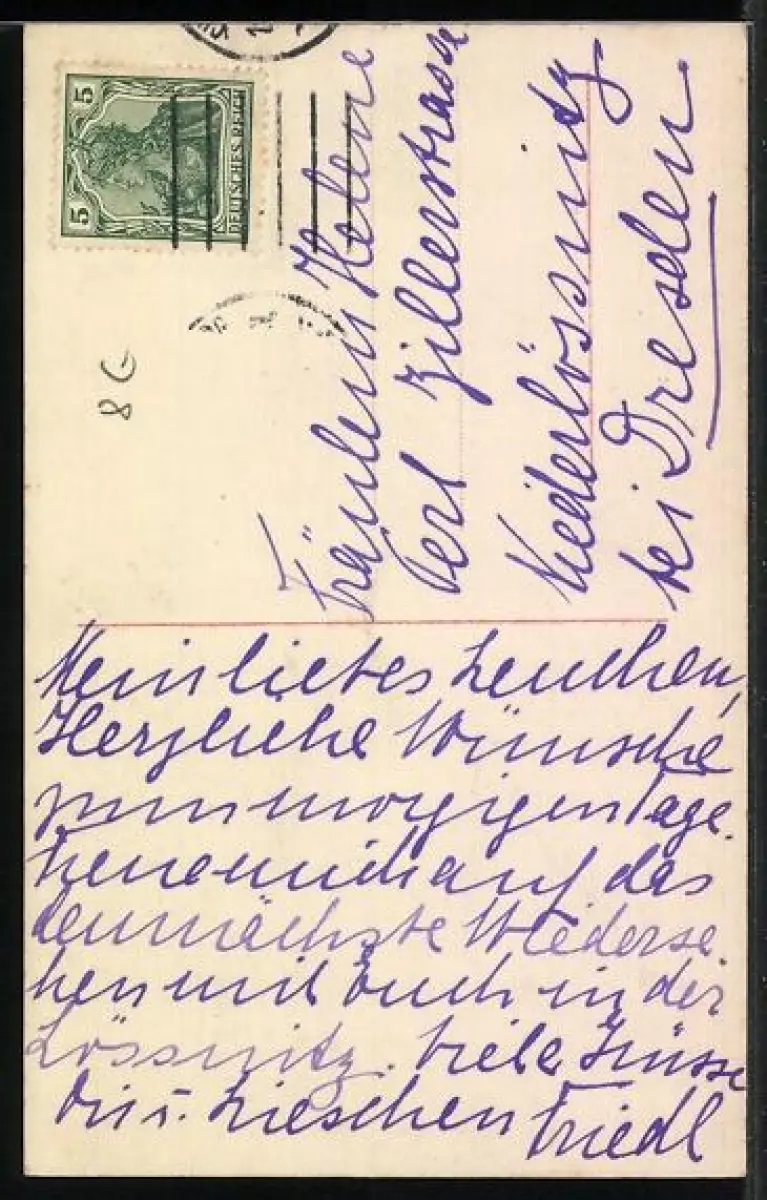 5
5
DEUTSCHES REICH
8G
Fräulein Helene
Oerl Zillerstrasse
Niederlössnitz
bei Dresden
Mein liebes Lenchen,
Herzliche Wünsche
zum morgigen Tage.
Freue mich auf das
demnächste Wiederse
hen mit Euch in der
Lössnitz. Viele Grüsse
Dir u. Lieschen Friedl